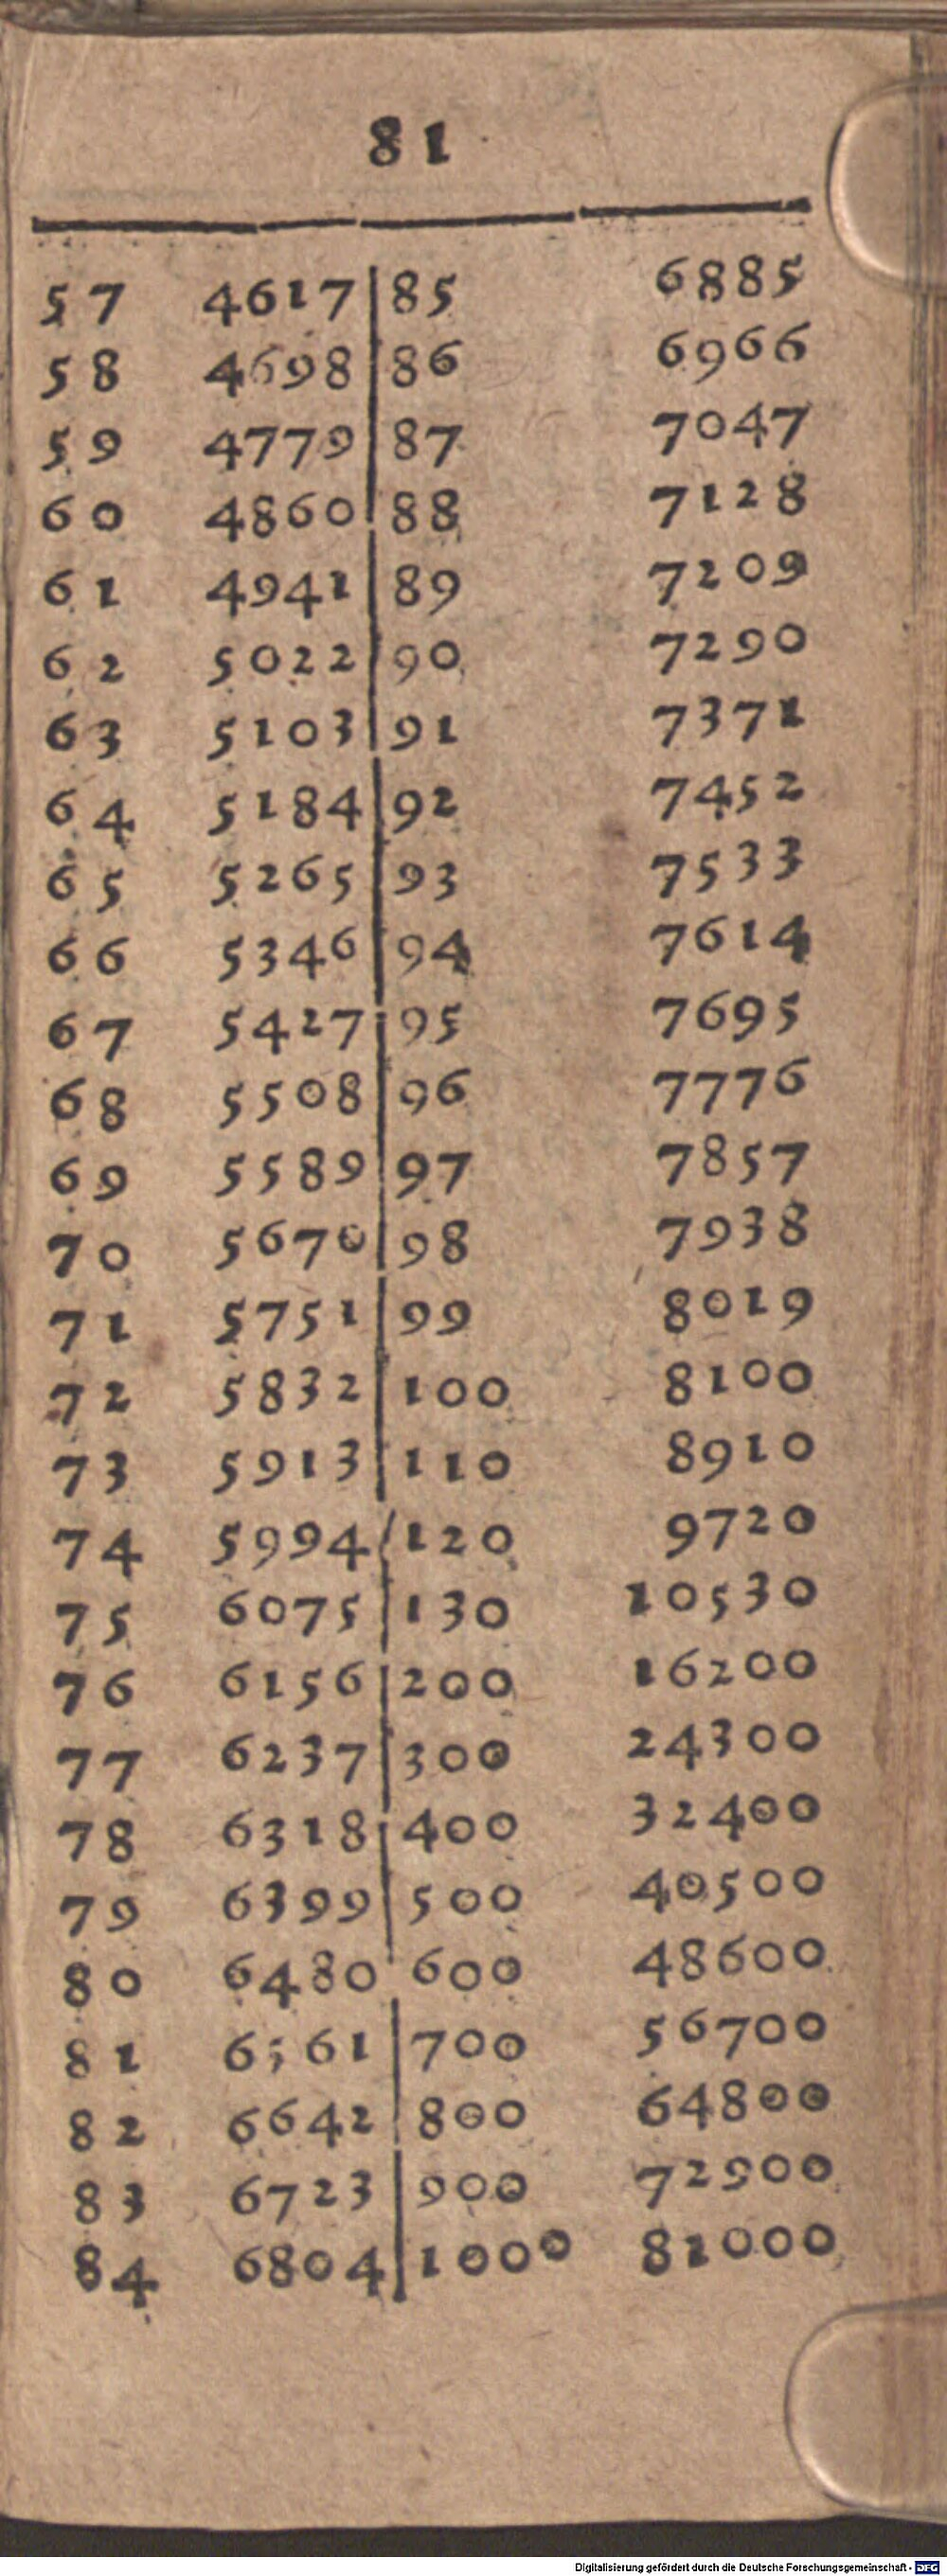 81
57 4617 85 6885
58 4698 86 6966
59 4779 87 7047
60 4860 88 7128
61 4941 89 7209
62 5022 90 7290
63 5103 91 7371
64 5184 92 7452
65 5265 93 7533
66 5346 94 7614
67 5427 95 7695
68 5508 96 7776
69 5589 97 7857
70 5670 98 7938
71 5751 99 8019
72 5832 100 8100
73 5913 110 8910
74 5994 120 9720
75 6075 130 10530
76 6156 200 16200
77 6237 300 24300
78 6318 400 32400
79 6399 500 40500
80 6480 600 48600
81 6561 700 56700
82 6642 800 64800
83 6723 900 72900
84 6804 1000 81000
Digitalisierung gefördert durch die Deutsche Forschungsgemeinschaft - DFG